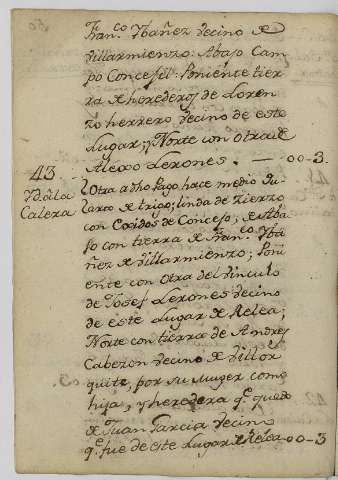 Fran.co Ybañez Vecino de
Villarmienzo: Abajo Cam-
po Concejil: Poniente tier-
rra de herederos de Loren-
zo herrero Vecino de este
Lugar; y Norte con otra de
Alexo Lerones. — 00-3.
43
Yd. a la
Calera
Otra a dho Pago hace medio
de trigo; linda de Zierzo
con Cozidos de Concejo; de Aba-
jo con tierra de Fran.co Yba-
ñez de Villarmienzo; Poni-
ente con otra del Vinculo
de Josef Lerones Vecino
de este Lugar de Relea;
Norte con tierra de Andres
Cabezon Vecino de Villor-
quite, por su Muger como
hija, y heredera q.e quedo
de Juan Garcia Vecino
q.e fue de este Lugar de Relea 00-3